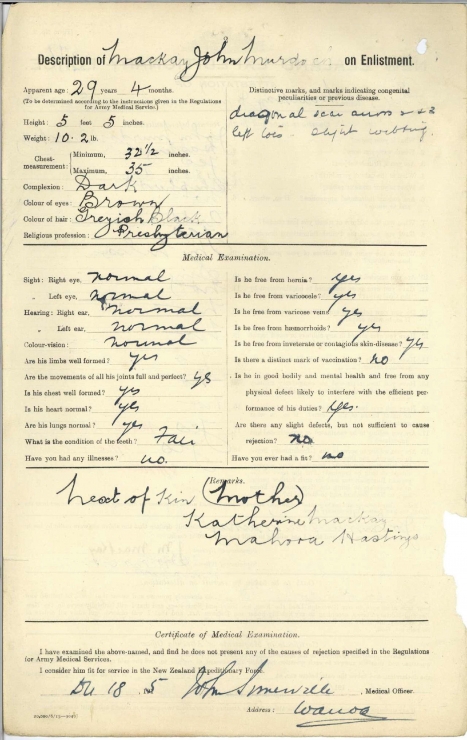 Description of Mackay John Murdoch on Enlistment.
Apparent age: 29 years 4 months.
(To be determined according to the instructions given in the Regulations for Army Medical Service.)
Height: 5 feet 5 inches.
Weight: 10.2 lb.
Chest-measurement: Minimum, 32 1/2 inches.
Maximum, 35 inches.
Complexion: Dark
Colour of eyes: Brown
Colour of hair: Greyish Black
Religious profession: Presbyterian
Distinctive marks, and marks indicating congenital peculiarities or previous disease.
diagonal scar across 2 & 3
left toes. slight webbing.
Medical Examination.
Sight: Right eye, normal
„ Left eye, normal
Hearing: Right ear, normal
„ Left ear, normal
Colour-vision: normal
Are his limbs well formed? yes
Are the movements of all his joints full and perfect? yes
Is his chest well formed? yes
Is his heart normal? yes
Are his lungs normal? yes
What is the condition of the teeth? Fair
Have you had any illnesses? no.
Is he free from hernia? yes
Is he free from varicocele? yes
Is he free from varicose veins? yes
Is he free from hæmorrhoids? yes
Is he free from inveterate or contagious skin-disease? yes
Is there a distinct mark of vaccination? no
Is he in good bodily and mental health and free from any
physical defect likely to interfere with the efficient performance of his duties? yes.
Are there any slight defects, but not sufficient to cause
rejection? no
Have you ever had a fit? no
Remarks.
next of Kin (Mother)
Katherine Mackay
Mahora Hastings
Certificate of Medical Examination.
I have examined the above-named, and find he does not present any of the causes of rejection specified in the Regulations
for Army Medical Services.
I consider him fit for service in the New Zealand Expeditionary Force.
18 John Somerville, Medical Officer.
Address: